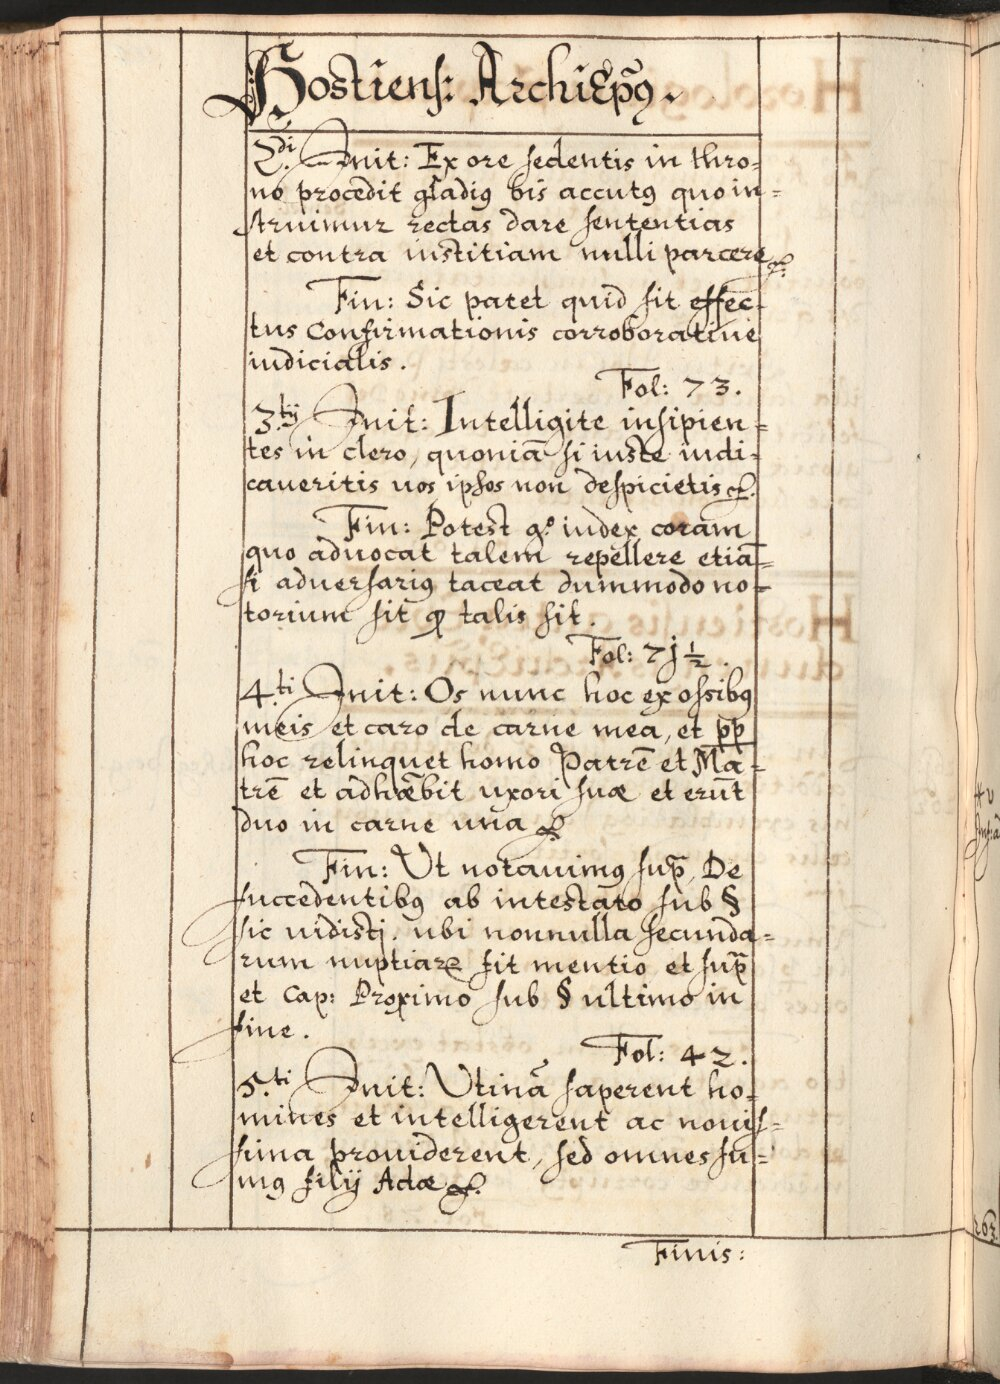 Hostiens: ArchiEpũs.
2.di Init: Ex ore sedentis in thro=
no procedit gladiꝰ bis accutꝰ quo in=
struimur rectas dare sententias
et contra iustitiam nulli parcere &.
Fin: Sic patet quid sit effec=
tus Confirmationis corroboratiue
iudicialis.
Fol: 73.
3.tij Init: Intelligite insipien=
tes in clero, quoniã si iuste iudi=
caueritis uos ipsos non despicietis &.
Fin: Potest g.o iudex coram
quo aduocat talem repellere etiã=
si aduersariꝰ taceat dummodo no=
torium sit ꝙ talis sit.
Fol: 7j ½.
4.ti Init: Os nunc hoc ex ossibꝰ
meis et caro de carne mea, et pp̄
hoc relinquet homo Patrẽ et Mã=
trẽ et adhæbit uxori suæ et erũt
duo in carne una &
Fin: Ut notauimꝰ sup̃, De
succedentibꝰ ab intestato sub §
sic uidistj. ubi nonnulla secunda=
rum nuptiaꝝ fit mentio et sup̃
et Cap: Proximo sub § ultimo in
fine.
Fol: 42.
5.ti Init: Utinã saperent ho=
mines et intelligerent ac nouis=
sima prouiderent, sed omnes su=
mꝰ filij Adæ &.
Finis:
263